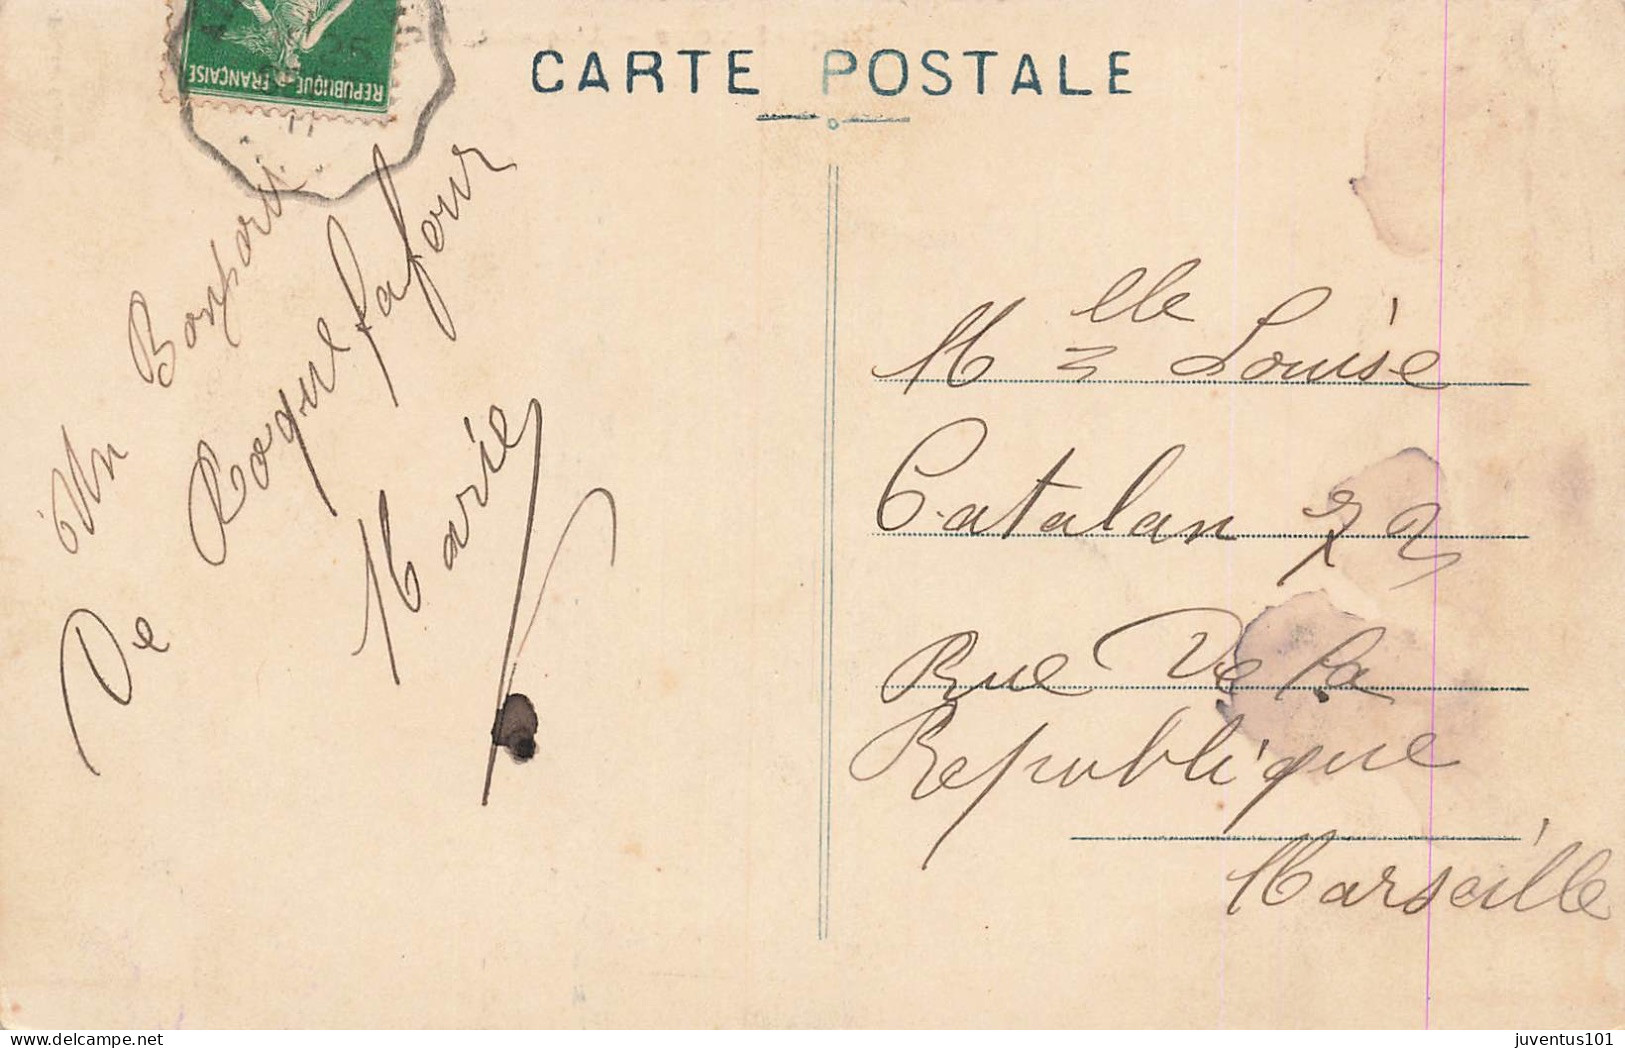 REPUBLIQUE FRANÇAISE
CARTE POSTALE
Un Bonjour
De Roquefafour
Marie
Mlle Louise
Catalan 22
Rue De la
Republique
Marseille
juventus101